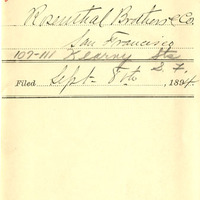 Rosenthal Brothers & Co.
San Francisco
107-111 Kearny Sts
S. F.
Filed Sept. 8th, 1894.